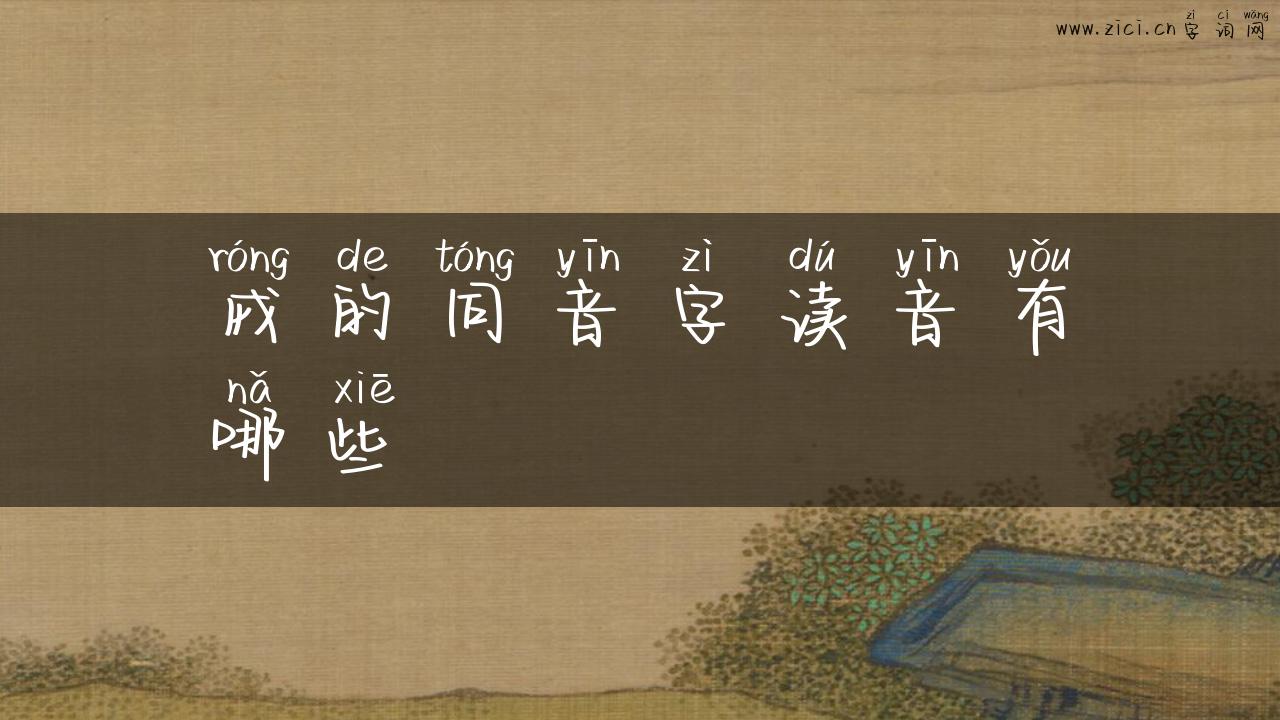 www.zici.cn
zì cí wǎng
字词网
róng de tóng yīn zì dú yīn yǒu
戎的同音字读音有
nǎ xiē
哪些